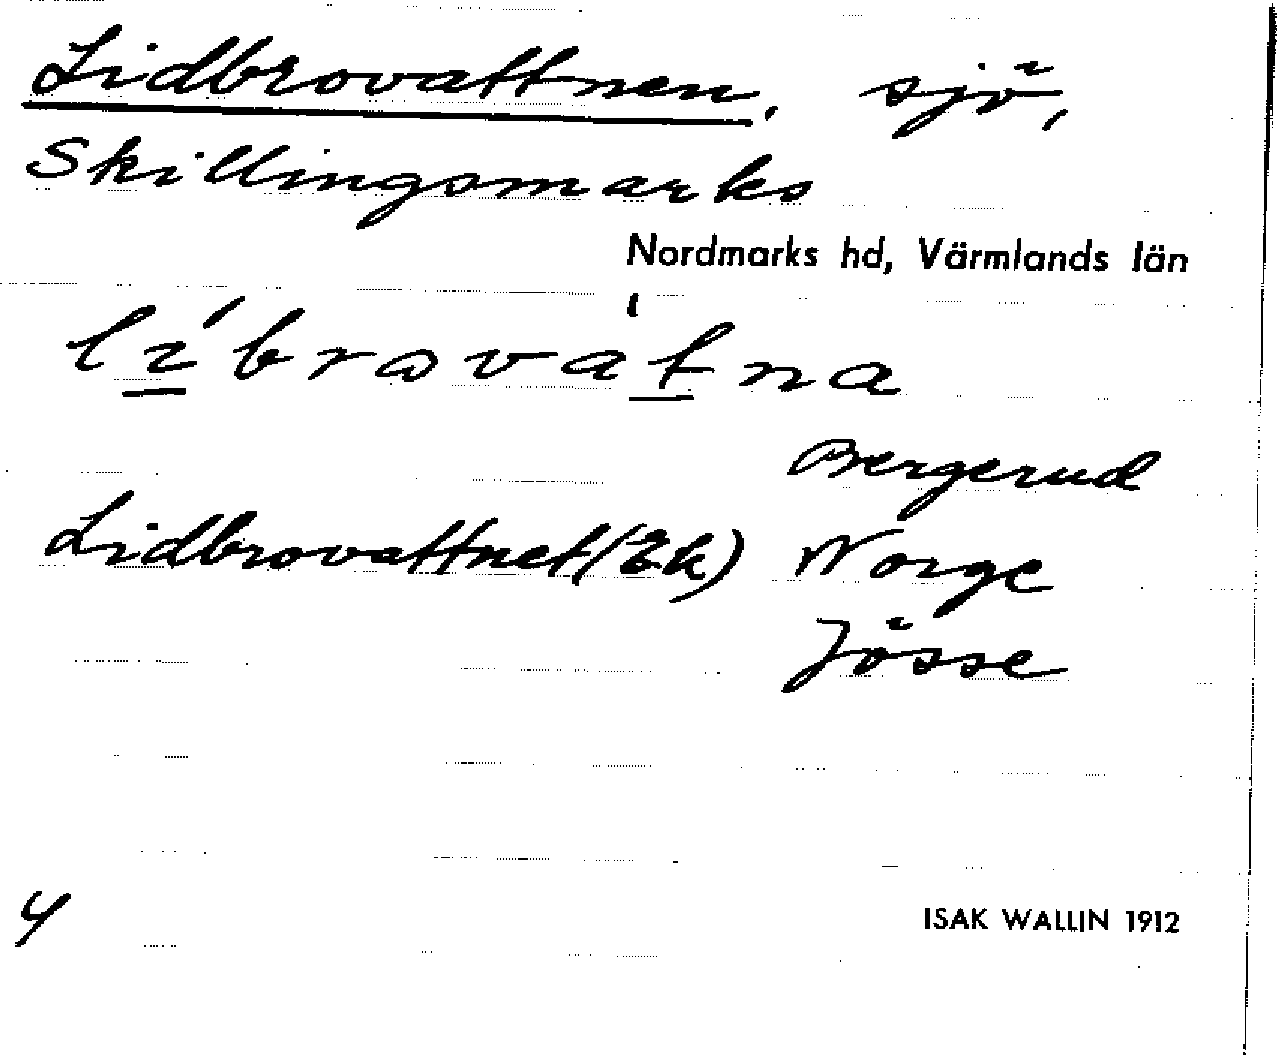 Lidbrovattnen, sjö,
Skillingsmarks
Nordmarks hd, Värmlands län
li̲´brovat̲`na
Bergerud
Lidbrovattnet (Ek) Norge
Jösse
4
ISAK WALLIN 1912